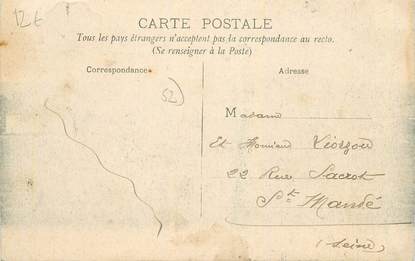 12€
CARTE POSTALE
Tous les pays étrangers n'acceptent pas la correspondance au recto.
(Se renseigner à la Poste)
Correspondance
Adresse
52
Madame
Et Monsieur
22 Rue Sacrot
St Mandé
(Seine)